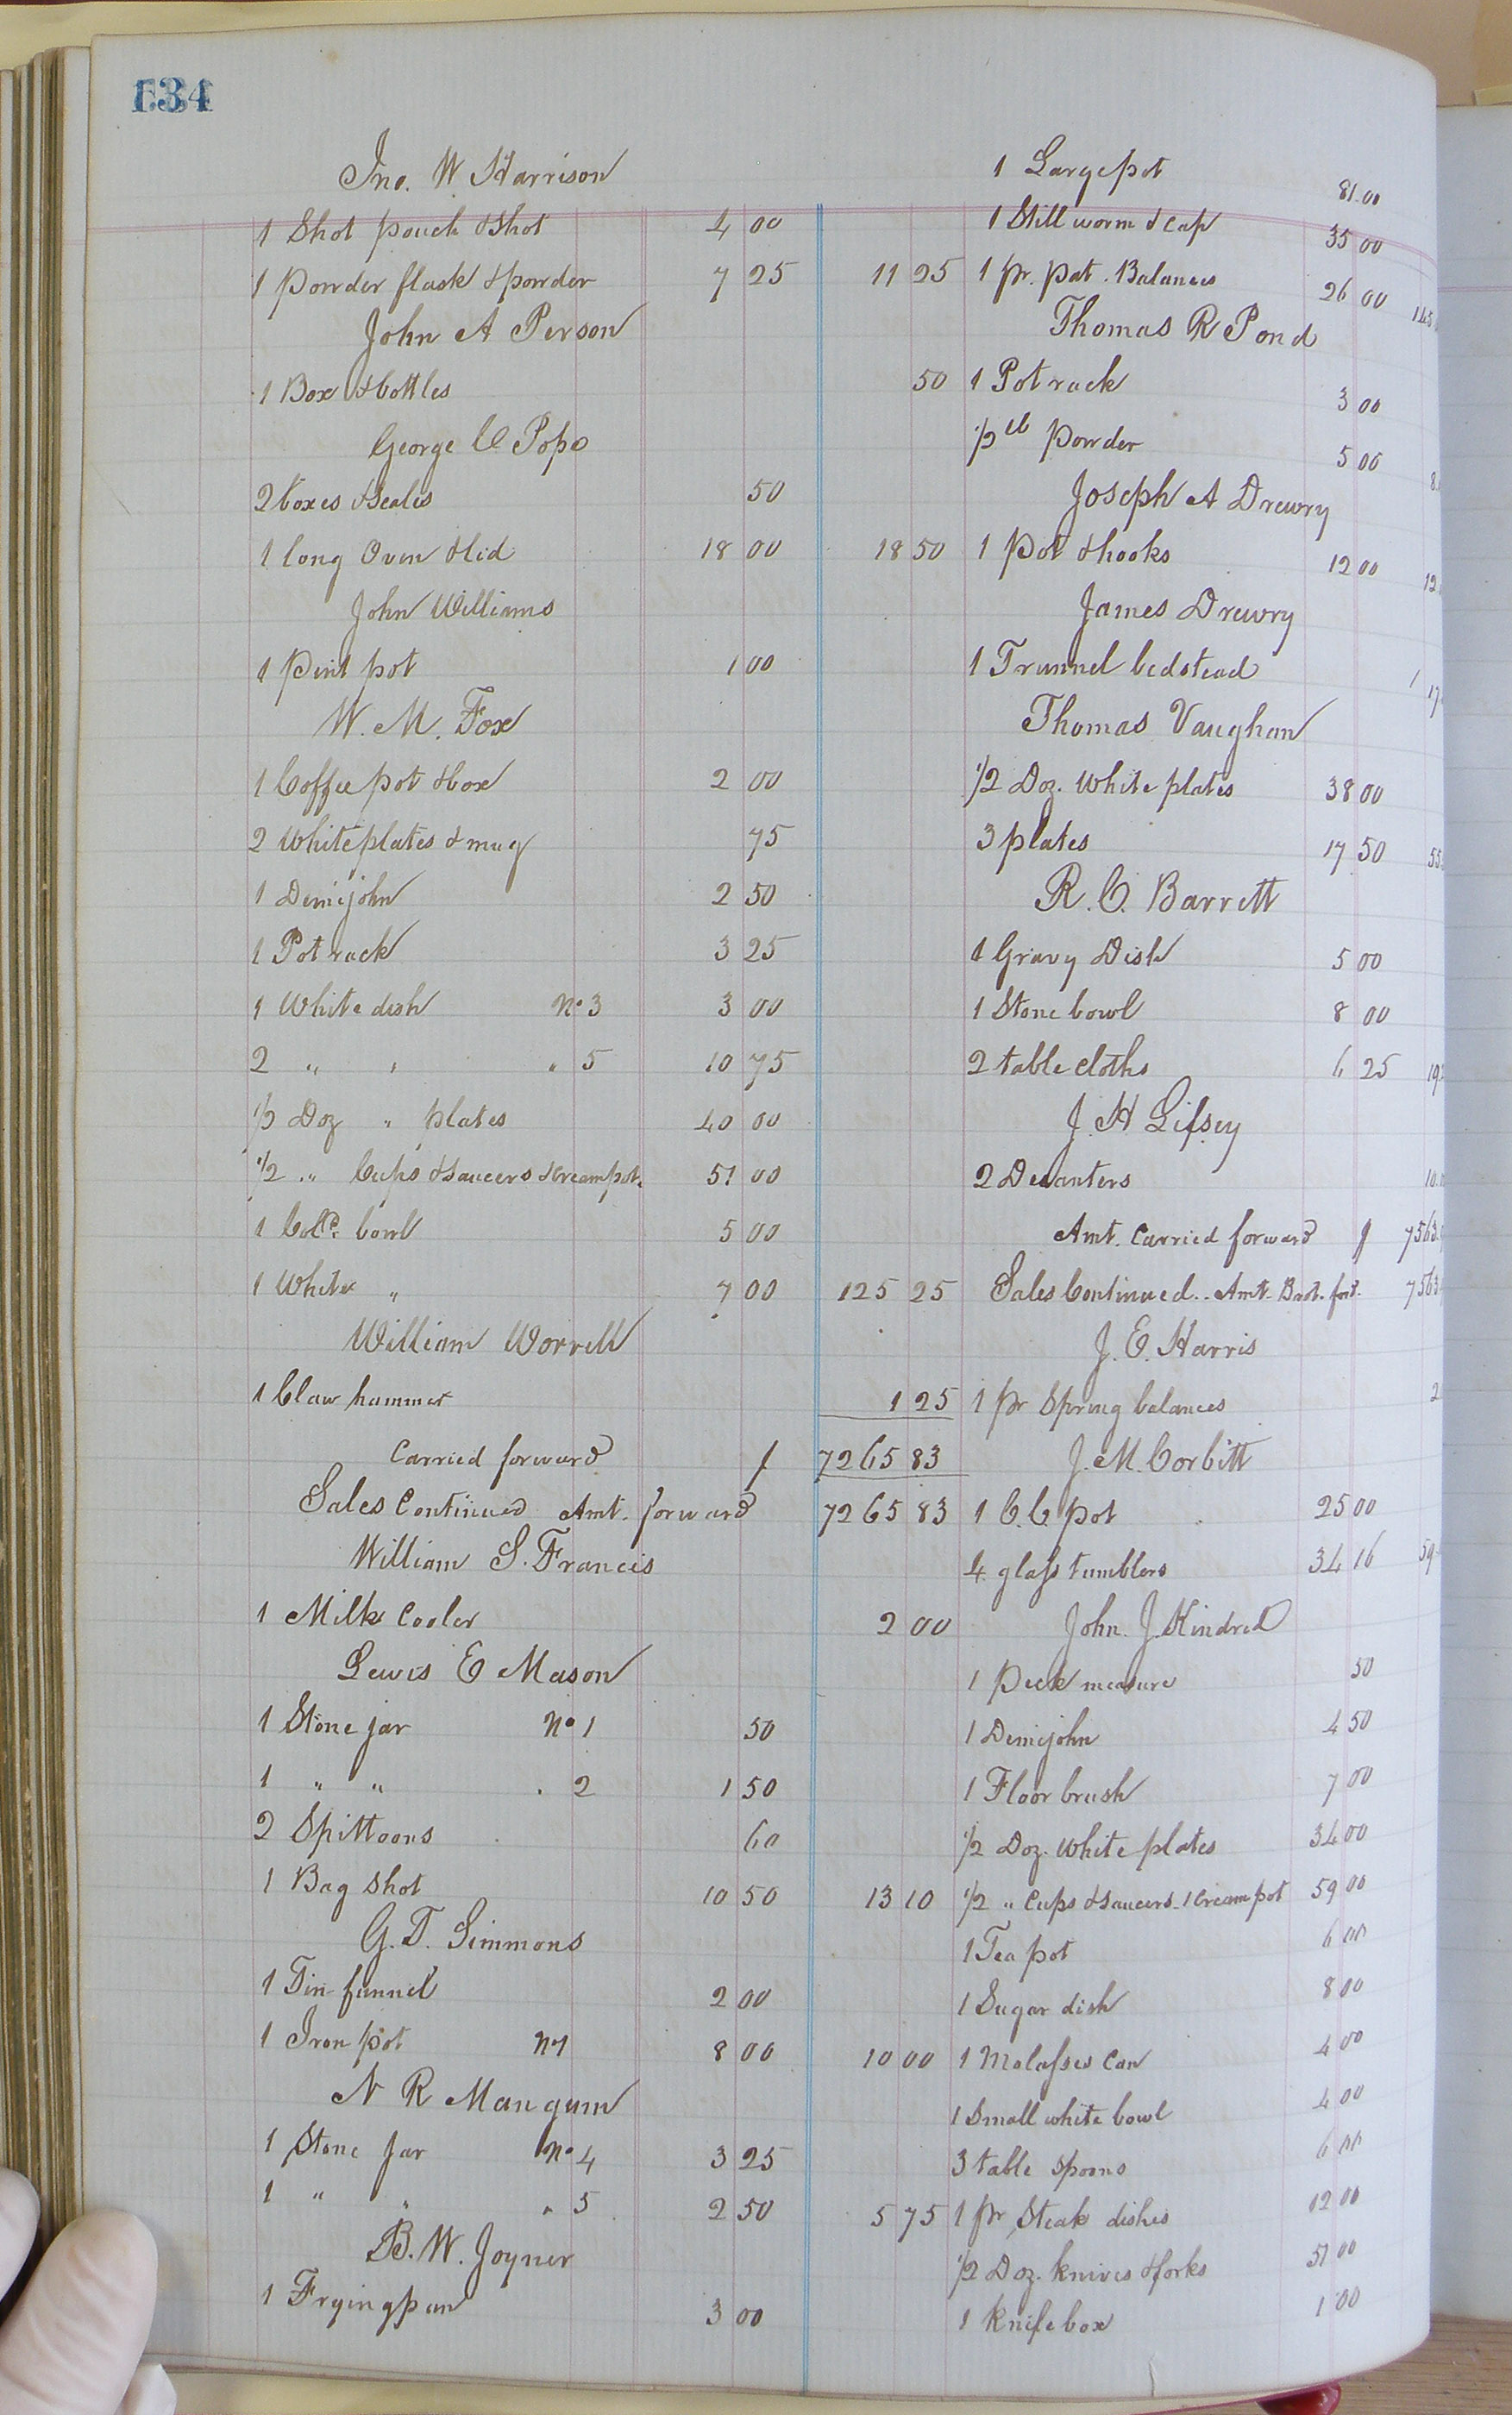 134
Jno. W Harrison
1 Shot pouch & Shot 4 00
1 Powder flask & powder 7 25 11 25
John A Person
1 Box & bottles 50
George C Pope
2 boxes & Scales 50
1 long Oven & lid 18 00 18 50
John Williams
1 Pint pot 1 00
W. M. Fox
1 Coffee pot & box 2 00
2 White plates & mug 75
1 Demijohn 2 50
1 Pot rack 3 25
1 White dish No 3 3 00
2 " " " 5 10 75
1/2 Doz " plates 40 00
1/2 " Cups & Saucers & Cream pot 51 00
1 Cold. bowl 5 00
1 White " 7 00 125 25
William Worrell
1 Claw hammer 1 25
Carried forward $ 7265 83
Sales Continued Amt. forward 7265 83
William S. Francis
1 Milk Cooler 2 00
Lewis E Mason
1 Stone jar No 1 50
1 " " . 2 1 50
2 Spittoons 60
1 Bag Shot 10 50 13 10
G. T. Simmons
1 Tin funnel 2 00
1 Iron pot 8 00 10 00
N R Mangum
1 Stone Jar No 4 3 25
1 " " " 5 2 50 5 75
B. W. Joyner
1 Frying pan 3 00
1 Large pot 81.00
1 Still worm & cap 35 00
1 pr. pat. Balances 26 00
Thomas R Pond
1 Pot rack 3 00
1/2 lb Powder 5 00
Joseph A Drewry
1 Pot & hooks 12 00
James Drewry
1 Trunnel bedstead
Thomas Vaughan
1/2 Doz. White plates 38 00
3 plates 17 50
R. C. Barrett
1 Gravy Dish 5 00
1 Stone bowl 8 00
2 table cloths 6 25
J. H Lifsey
2 Decanters
Amt. Carried forward $ 7563
Sales Continued.. Amt. Brot. ford. 7563
J. E. Harris
1 pr Spring balances
J. M. Corbitt
1 C. C. pot 25 00
4 glass tumblers 34 16
John. J. Kindred
1 Peck measure 50
1 Demijohn 4 50
1 Floor brush 7 00
1/2 Doz. White plates 34 00
1/2 " Cups & Saucers. 1 Cream pot 59 00
1 Tea pot 6 00
1 Sugar dish 8 00
1 Molasses Can 4 00
1 Small white bowl 4 00
3 table spoons 6 00
1 pr Steak dishes 12 00
1/2 Doz. knives & forks 51 00
1 Knife box 1 00